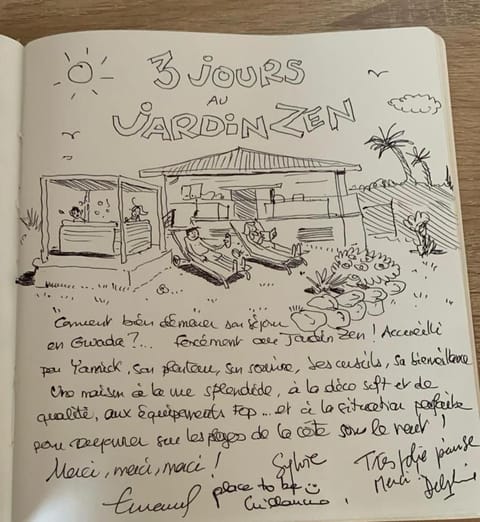 3 JOURS
AU
JARDIN ZEN
"Comment bien démarrer son séjour
en Gwada ?... Forcément au Jardin Zen ! Accueilli
par Yannick, son planteur, son sourire, ses conseils, sa bienveillance
Une maison à la vue splendide, à la déco soft et de
qualité, aux équipements top ... et à la situation parfaite
pour rayonner sur les plages de la côte sous le vent !
Merci, merci, merci !
Sylvie
Très jolie pause
Merci Delphine
Emmanuel
place to be